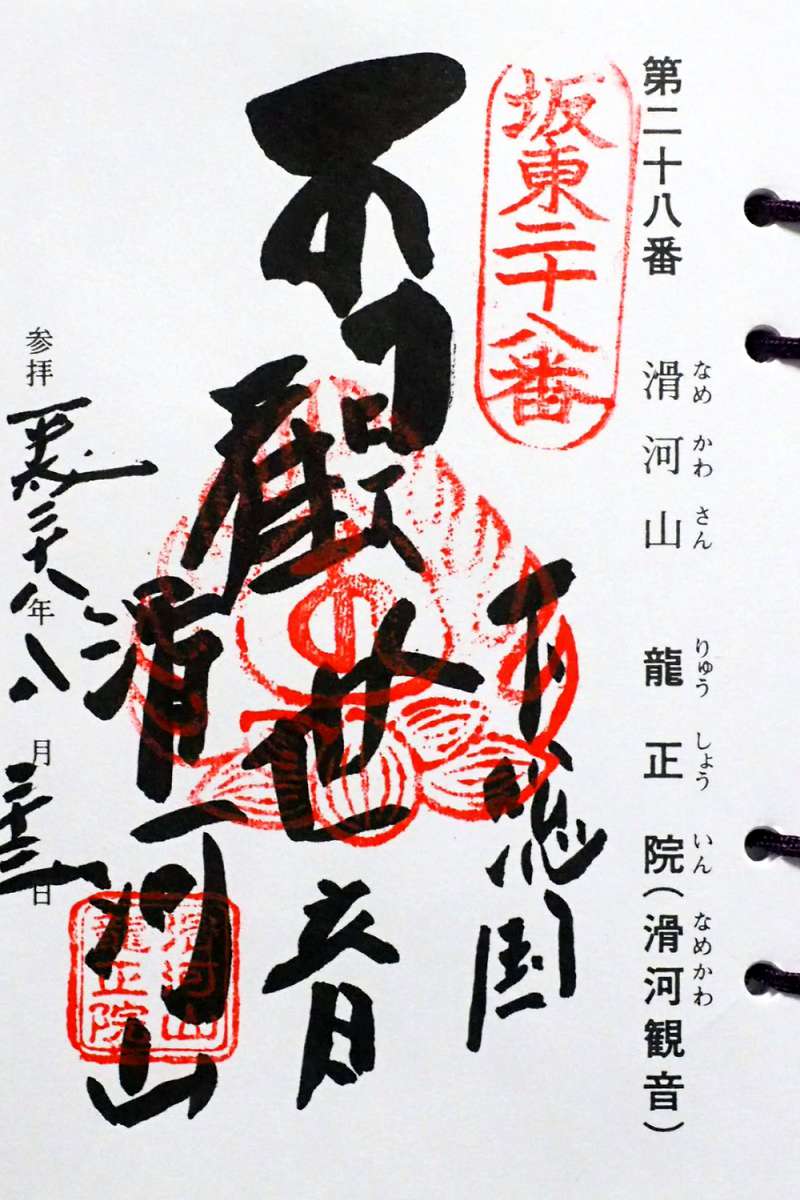 第二十八番 滑河山 龍正院(滑河観音)
なめ かわ さん りゅう しょう いん なめかわ
坂東二十八番
下総国
觀世音
滑河山
滑河山
龍正院
参拝 平成二十八年八月二十三日